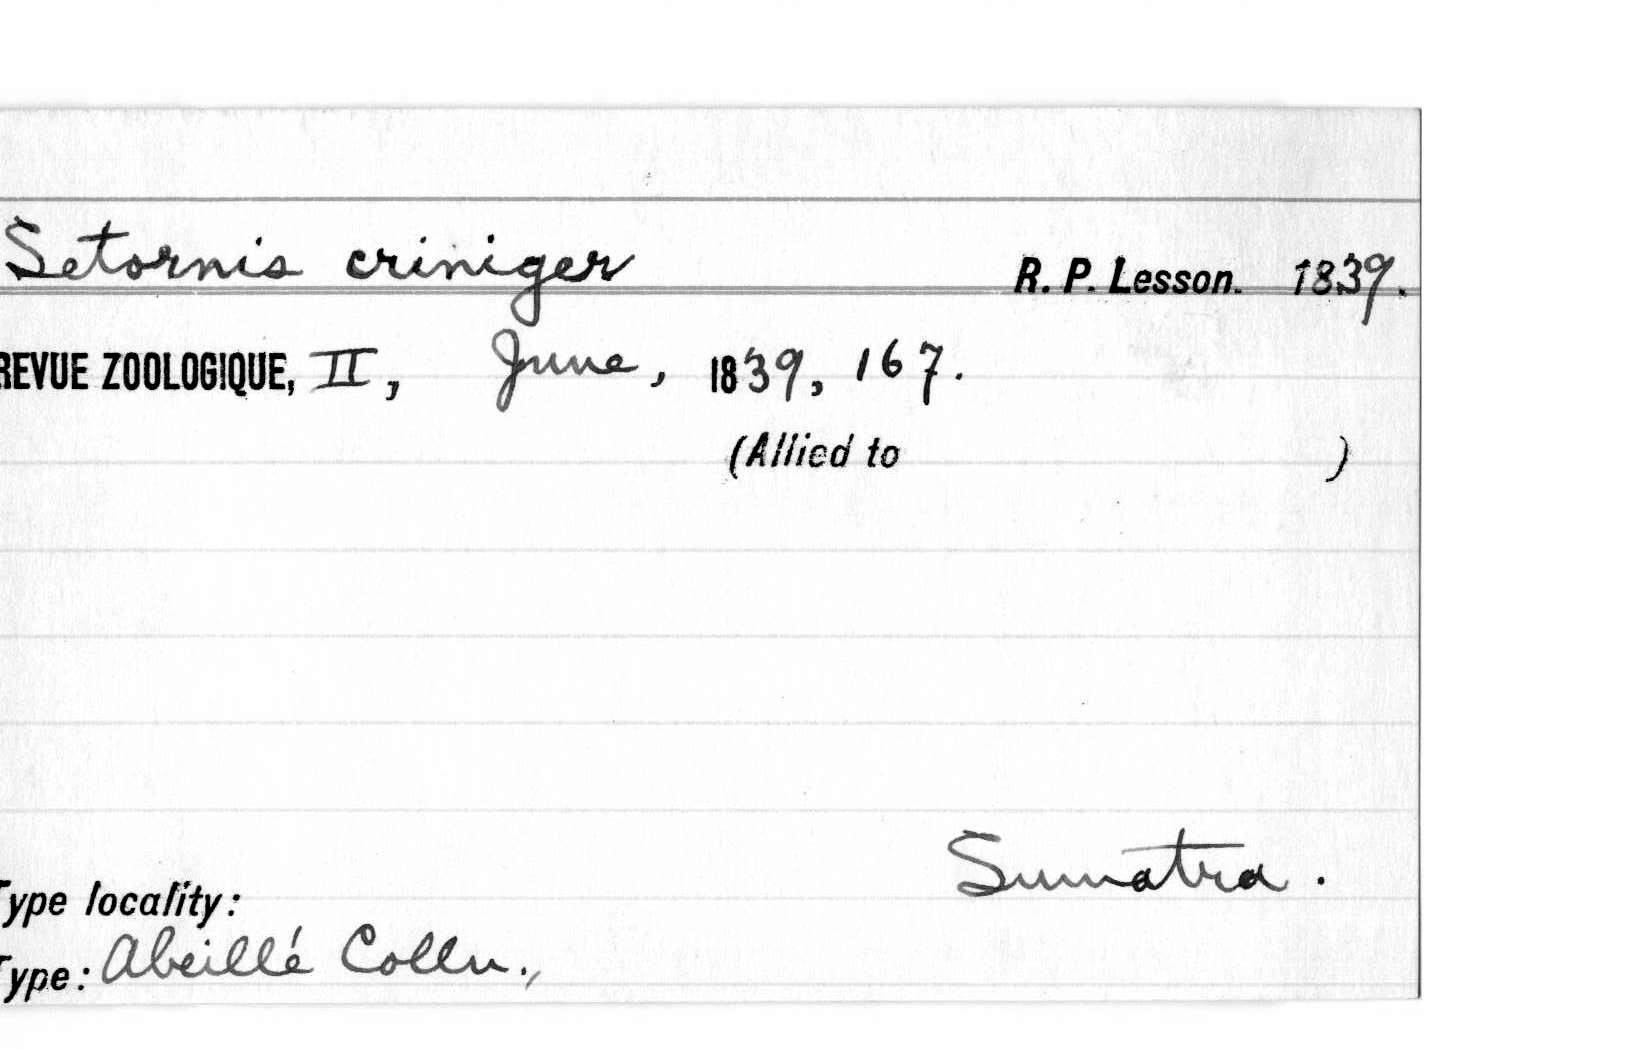 Setornis criniger R. P. Lesson. 1839.
REVUE ZOOLOGIQUE, II, June, 1839, 167.
(Allied to )
Sumatra.
Type locality:
Type: Abeillé Colln.,